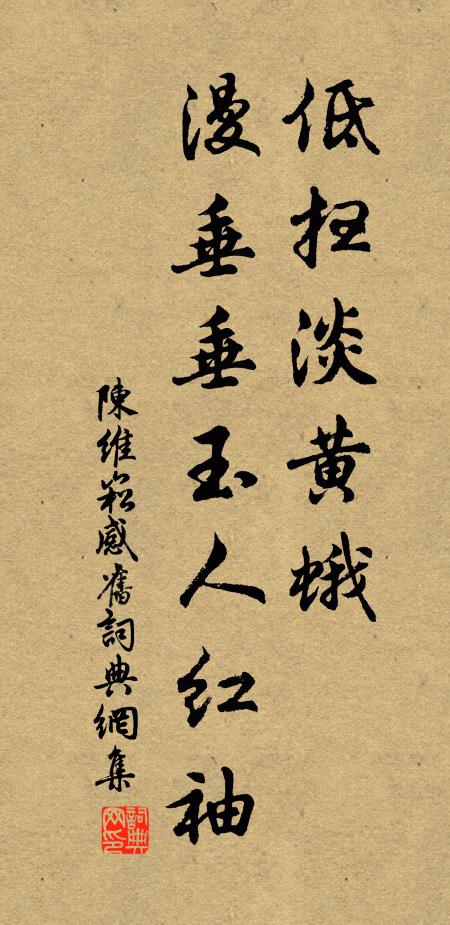 低扫淡黄蛾
漫垂垂玉人红袖
陳維崧感舊詞典網集
詞典網印